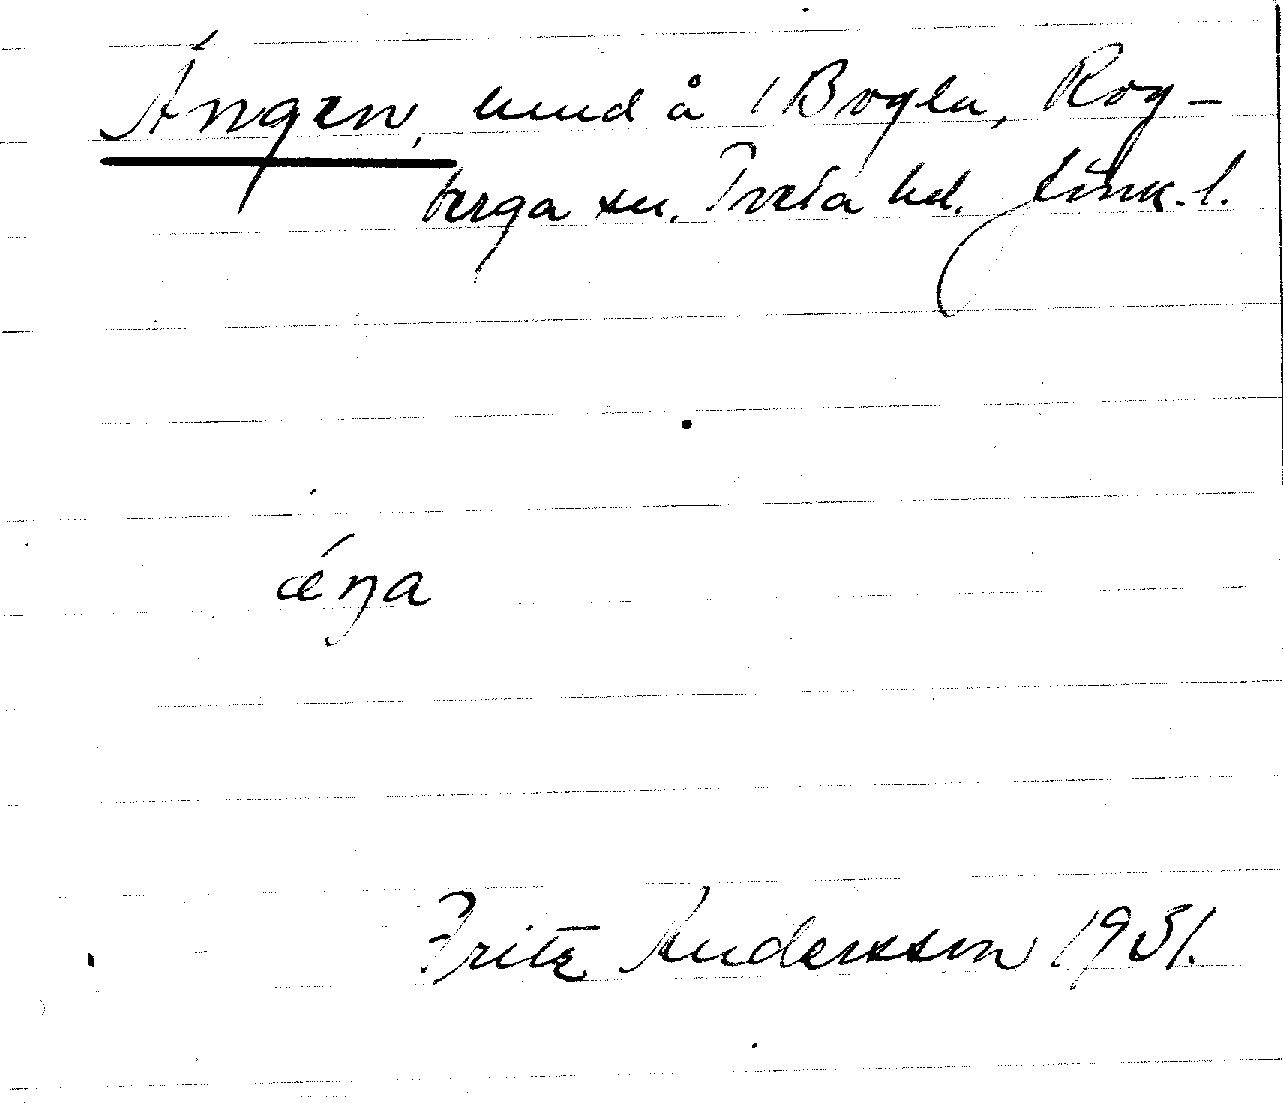 Ängen, lund å 1 Bogla, Rog-
berga sn. Tveta hd. Jönk. l.
ǽŋa
Fritz Andersson 1931.